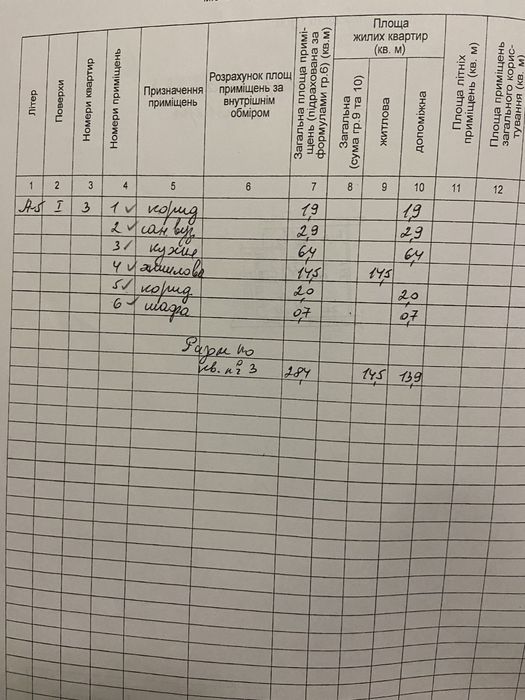 Літер
Поверхи
Номери квартир
Номери приміщень
Призначення приміщень
Розрахунок площ приміщень за внутрішнім обміром
Загальна площа приміщень (підрахована за формулами гр.6) (кв.м)
Площа жилих квартир (кв. м)
Загальна (сума гр.9 та 10)
житлова
допоміжна
Площа літніх приміщень (кв. м)
Площа приміщень загального користування (кв. м)
1 2 3 4 5 6 7 8 9 10 11 12
А-5 I 3 1 ✓ корид 1,9 1,9
2 ✓ сан вуз. 2,9 2,9
3 ✓ кухня 6,4 6,4
4 ✓ житлова 14,5 14,5
5 ✓ корид 2,0 2,0
6 ✓ шафа 0,7 0,7
Разом по
кв. № 3 28,4 14,5 13,9